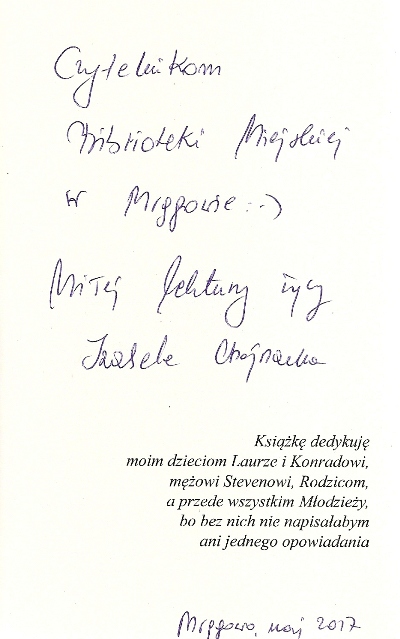 Czytelnikom
Biblioteki Miejskiej
w Mrągowie :-)
Miłej lektury życzy
Izabela Chojnacka
Książkę dedykuję
moim dzieciom Laurze i Konradowi,
mężowi Stevenowi, Rodzicom,
a przede wszystkim Młodzieży,
bo bez nich nie napisałabym
ani jednego opowiadania
Mrągowo, maj 2017